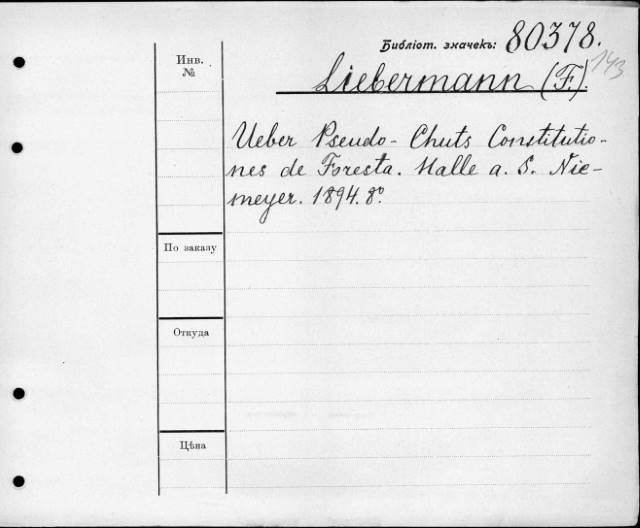 Библіот. значекъ: 80378.
143
Инв.
№
Liebermann (F.).
Ueber Pseudo-Chuts Constitutio-
nes de Foresta. Halle a. S. Nie-
meyer. 1894. 8º.
По заказу
Откуда
Цѣна